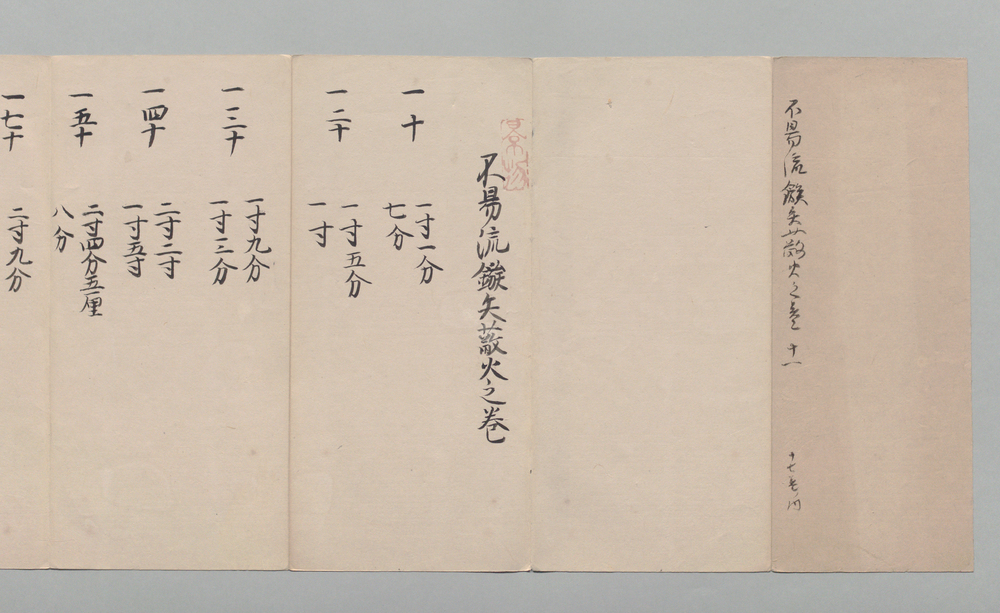 不易流鏃矢蔎火之巻 十一
十七巻ノ内
不易流鏃矢蔎火之巻
一 十
一寸一分
七分
一 二十
一寸五分
一寸
一 三十
一寸九分
一寸三分
一 四十
二寸二寸
一寸五寸
一 五十
二寸四分五厘
八分
一 七十
二寸九分